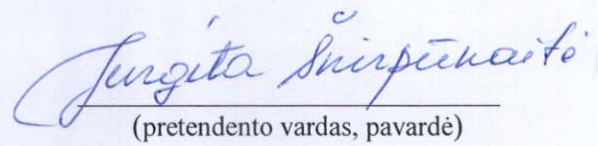 Jurgita Šnirpūnaitė
(pretendento vardas, pavardė)